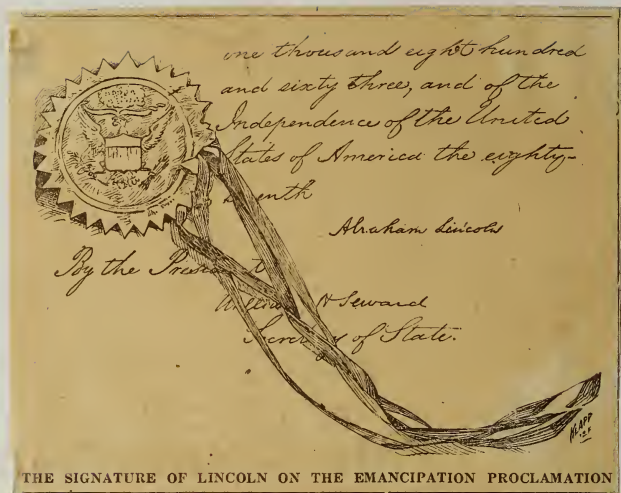 one thousand eight hundred
and sixty three, and of the
Independence of the United
States of America the eighty-
enth
Abraham Lincoln
By the Presi t
Willia H Seward
Secre y of State.
KLAPP
THE SIGNATURE OF LINCOLN ON THE EMANCIPATION PROCLAMATION